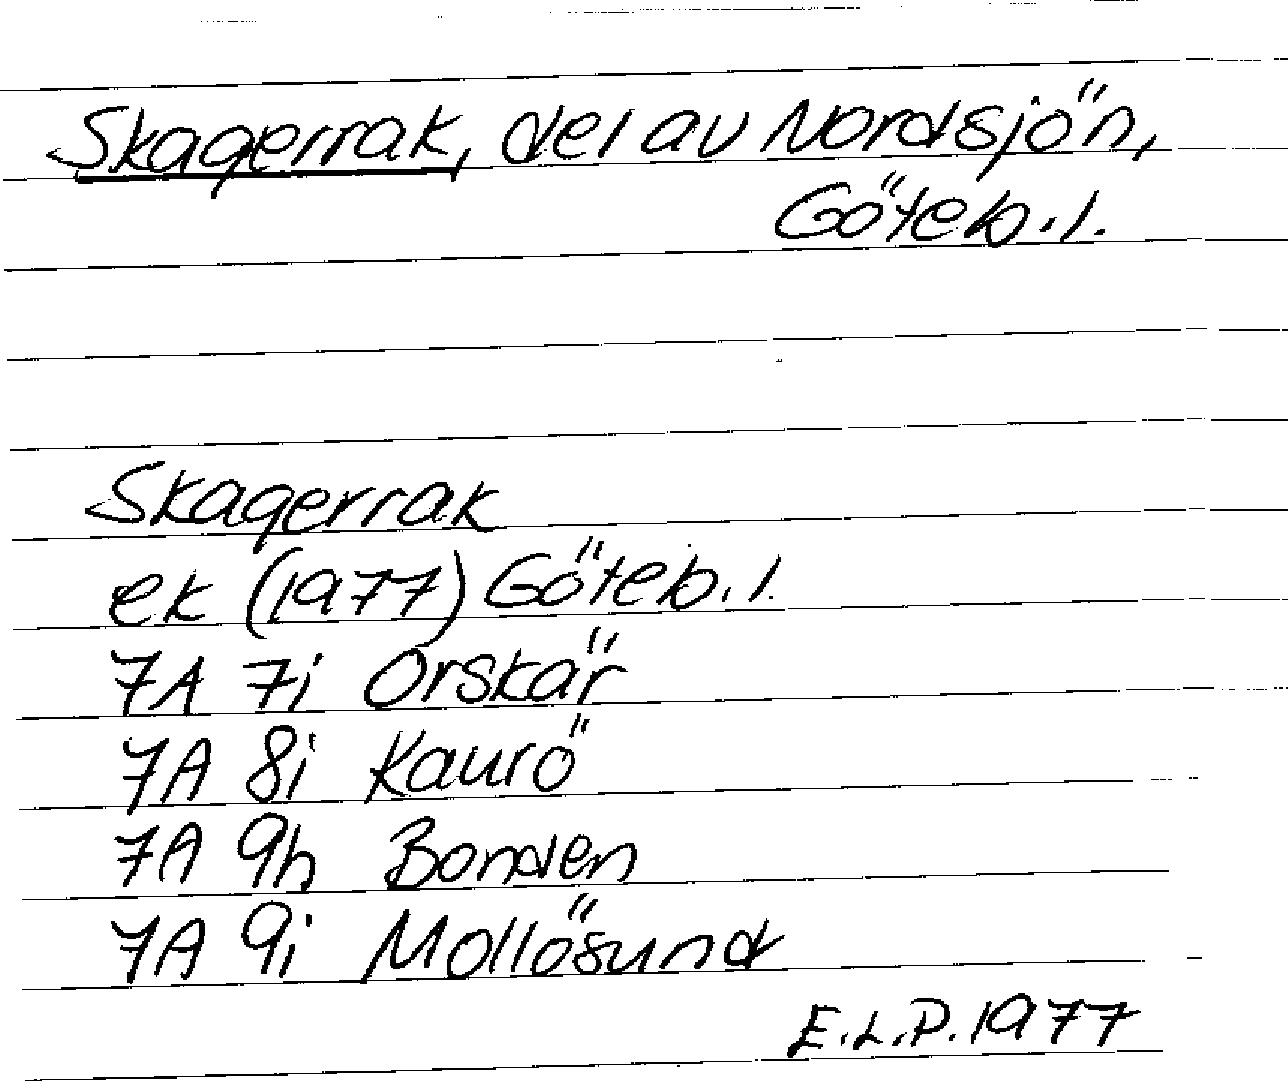 Skagerrak, del av Nordsjön,
Göteb.l.
Skagerrak
ek (1977) Göteb.l.
7A 7i Orskär
7A 8i Kaurö
7A 9h Bonden
7A 9i Mollösund
E.L.P. 1977